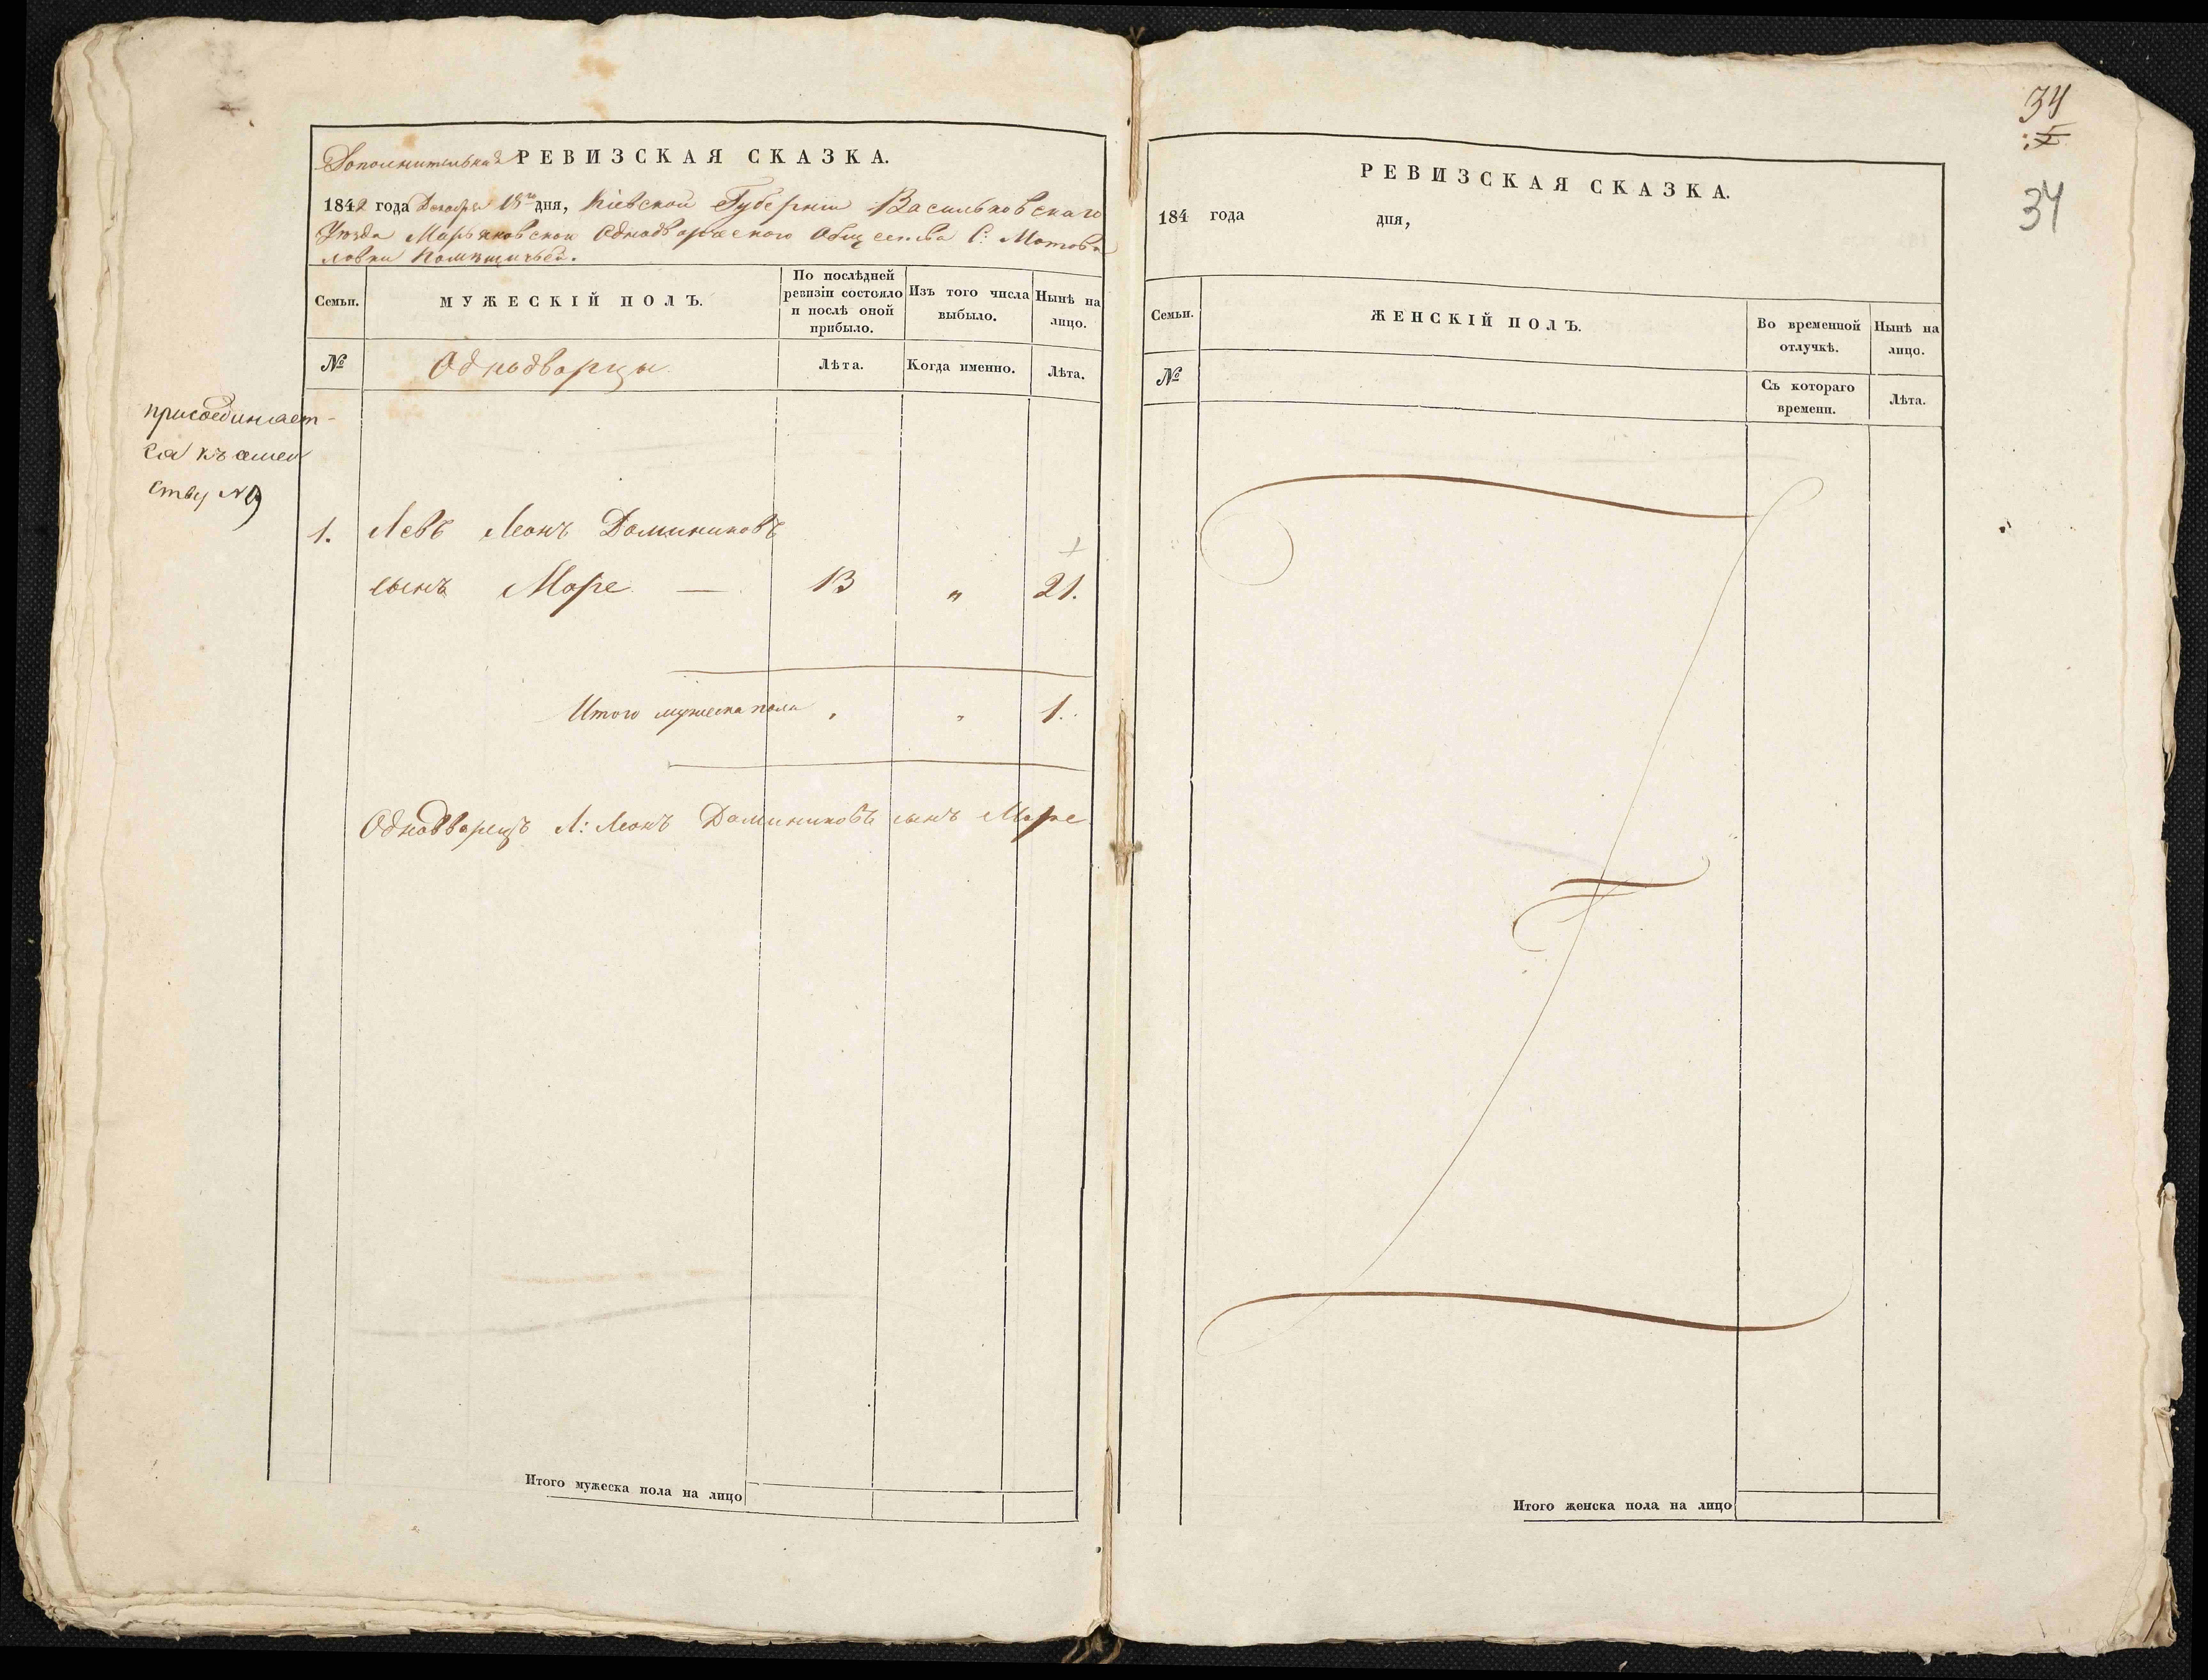 Дополнительная РЕВИЗСКАЯ СКАЗКА.
1842 года Декабря 18го дня, Кіевской Губерніи Васильковскаго
Уѣзда Марьяновском Однодворческого Общества С: Мотови
ловки Помѣщичьей.
Семьи.
МУЖЕСКІЙ ПОЛЪ.
По послѣдней
ревизіи состояло
и послѣ оной
прибыло.
Изъ того числа
выбыло.
Нынѣ на
лицо.
№
Однодворцы.
Лѣта.
Когда именно.
Лѣта.
присоединает-
ся къ семей
ству N9
1. Левъ Леонъ Доминиковъ
сынъ Маре — 13 " 21.
Итого мужеска пола , " 1.
Однодворецъ Л: Леонъ Доминиковъ сынъ Маре
Итого мужеска пола на лицо
34
34
РЕВИЗСКАЯ СКАЗКА.
184 года дня,
Семьи.
ЖЕНСКІЙ ПОЛЪ.
Во временной
отлучкѣ.
Нынѣ на
лицо.
№
Съ котораго
времени.
Лѣта.
Итого женска пола на лицо